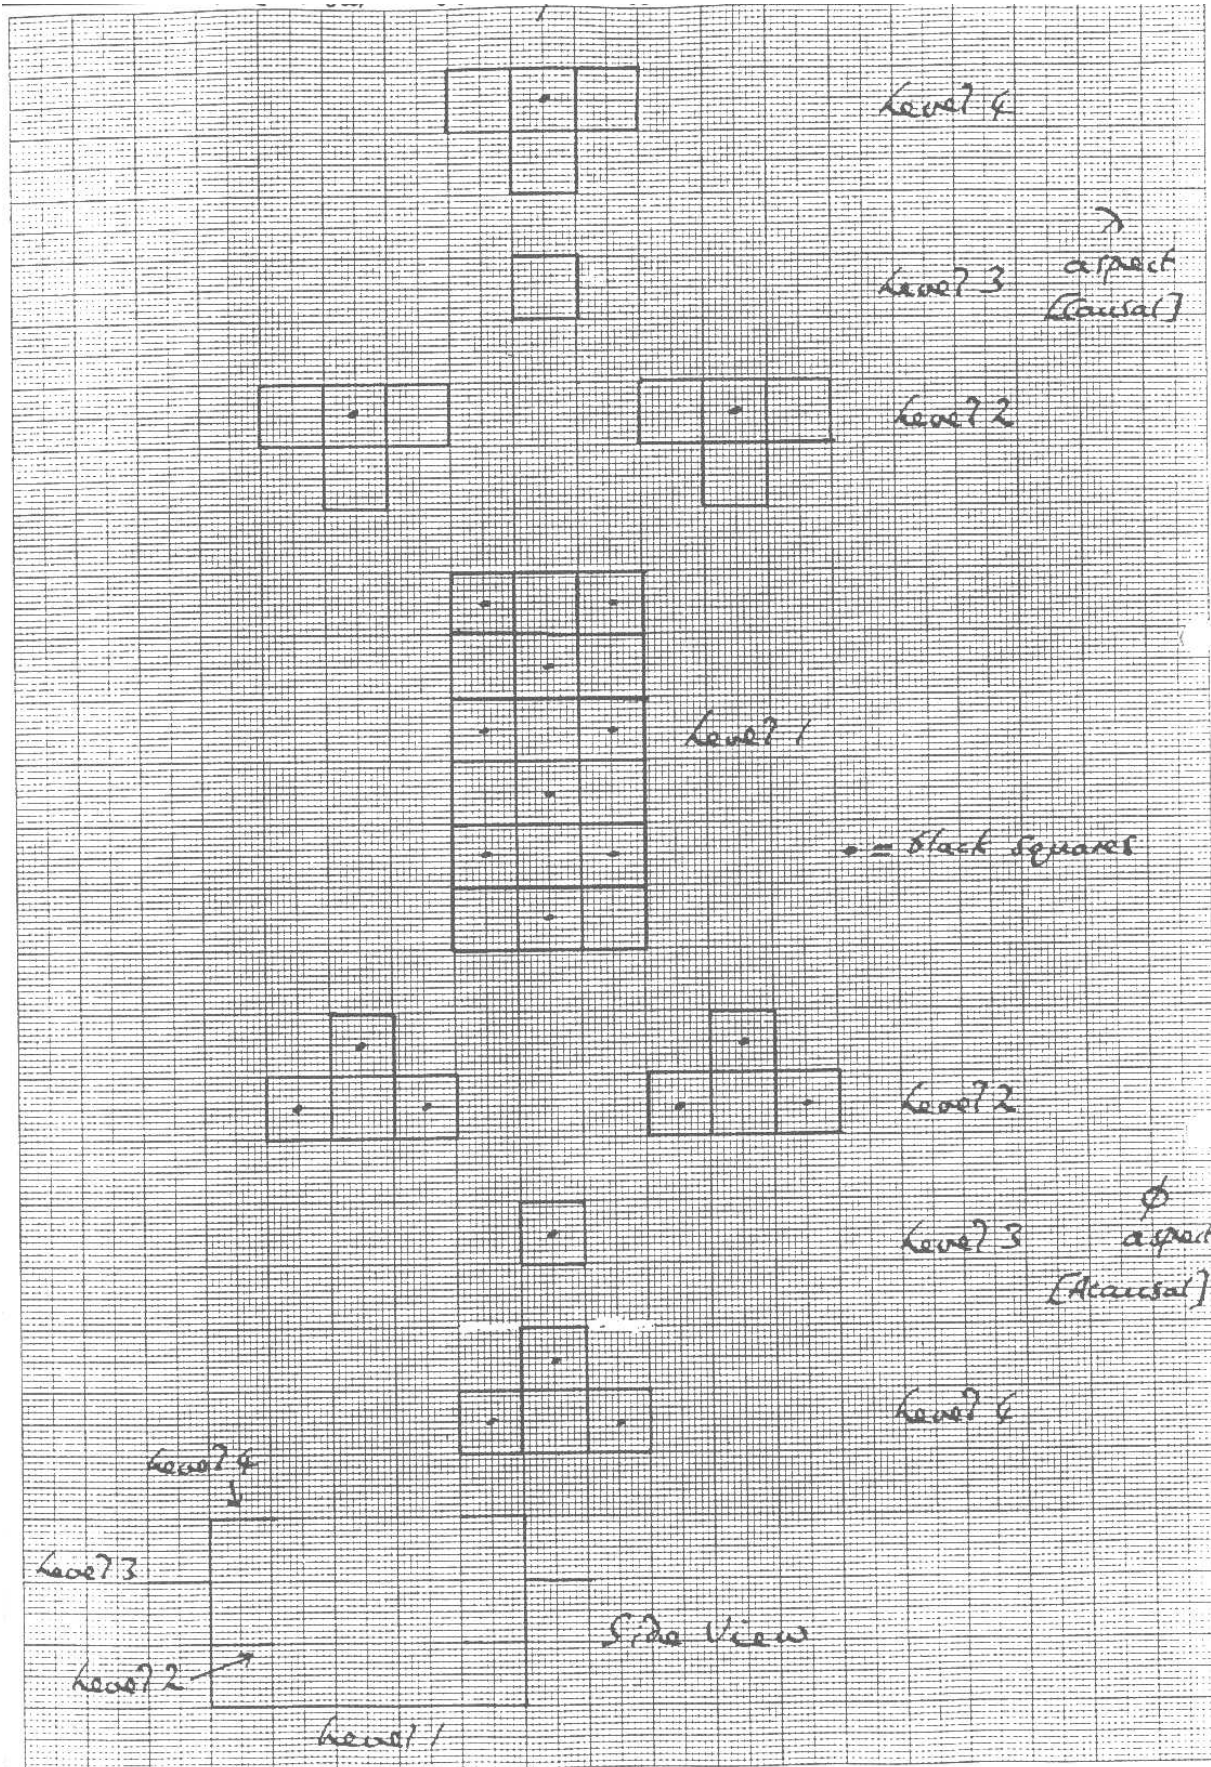 Level 4
aspect
[Causal]
Level 3
Level 2
Level 1
• = black squares
Level 2
φ
aspect
[Acausal]
Level 3
Level 4
Level 4
Level 3
Side View
Level 2
Level 1